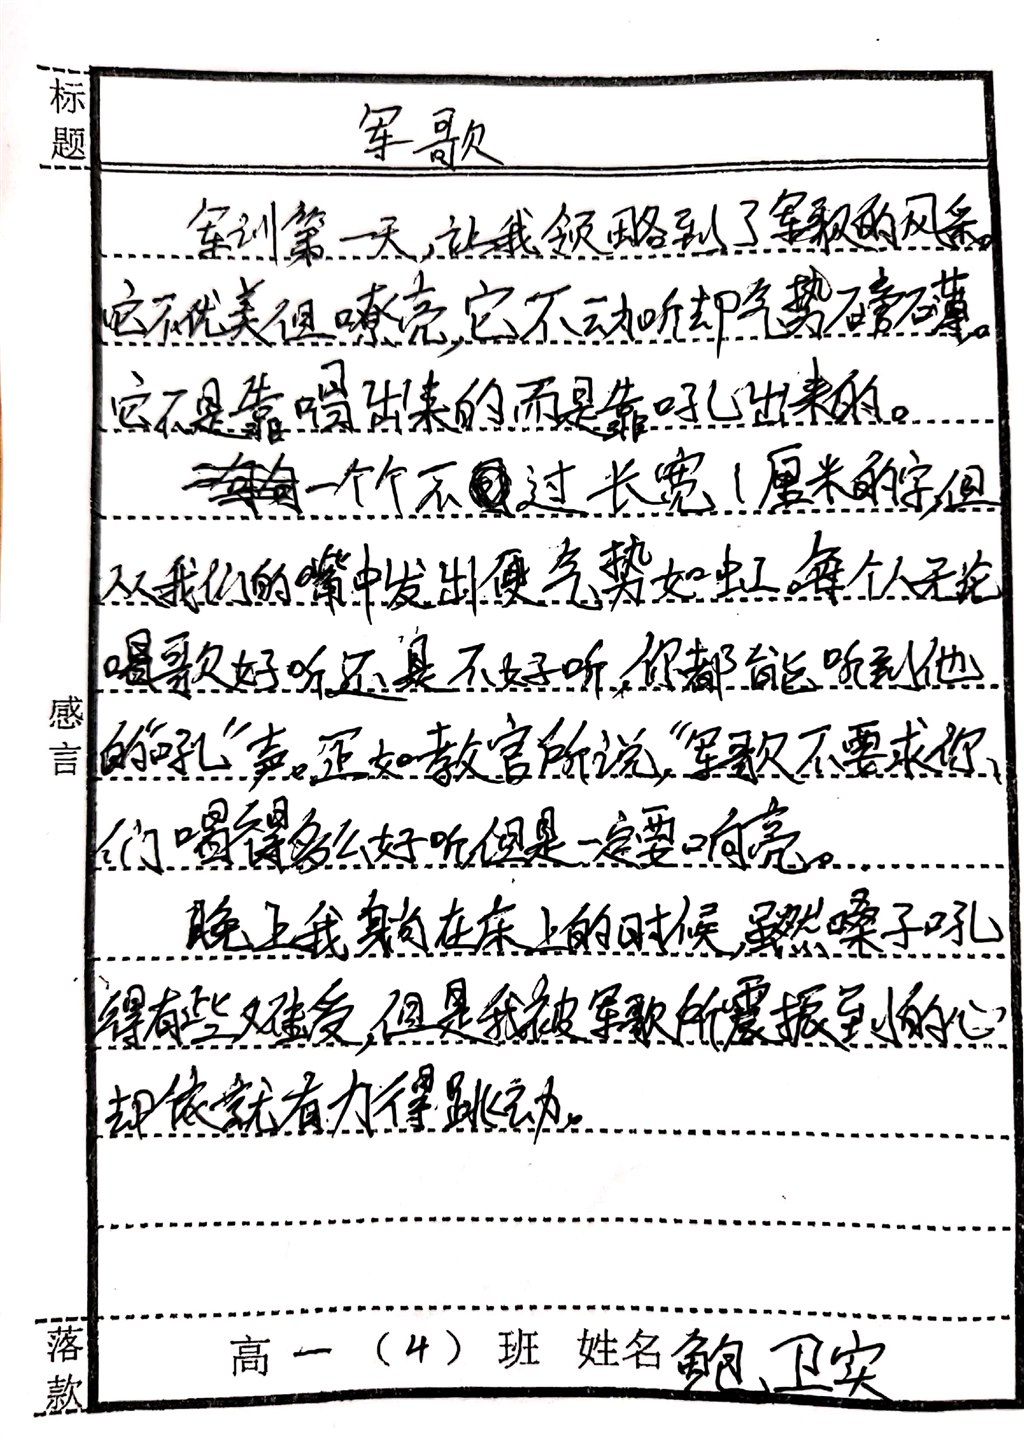 标题
军歌
军训第一天,让我领略到了军歌的风采。
它不优美但嘹亮,它不动听却气势磅礴。
它不是靠唱出来的而是靠吼出来的。
一个个不过长宽1厘米的字,但
从我们的嘴中发出便气势如虹。每个人无论
唱歌好听还是不好听,你都能听到他
的“吼”声。正如教官所说,“军歌不要求你
们唱得多么好听,但是一定要响亮。
感言
晚上我躺在床上的时候,虽然嗓子吼
得有些难受,但是我被军歌所震撼到的心
却依就有力得跳动。
落款
高一(4)班 姓名 鲍卫实